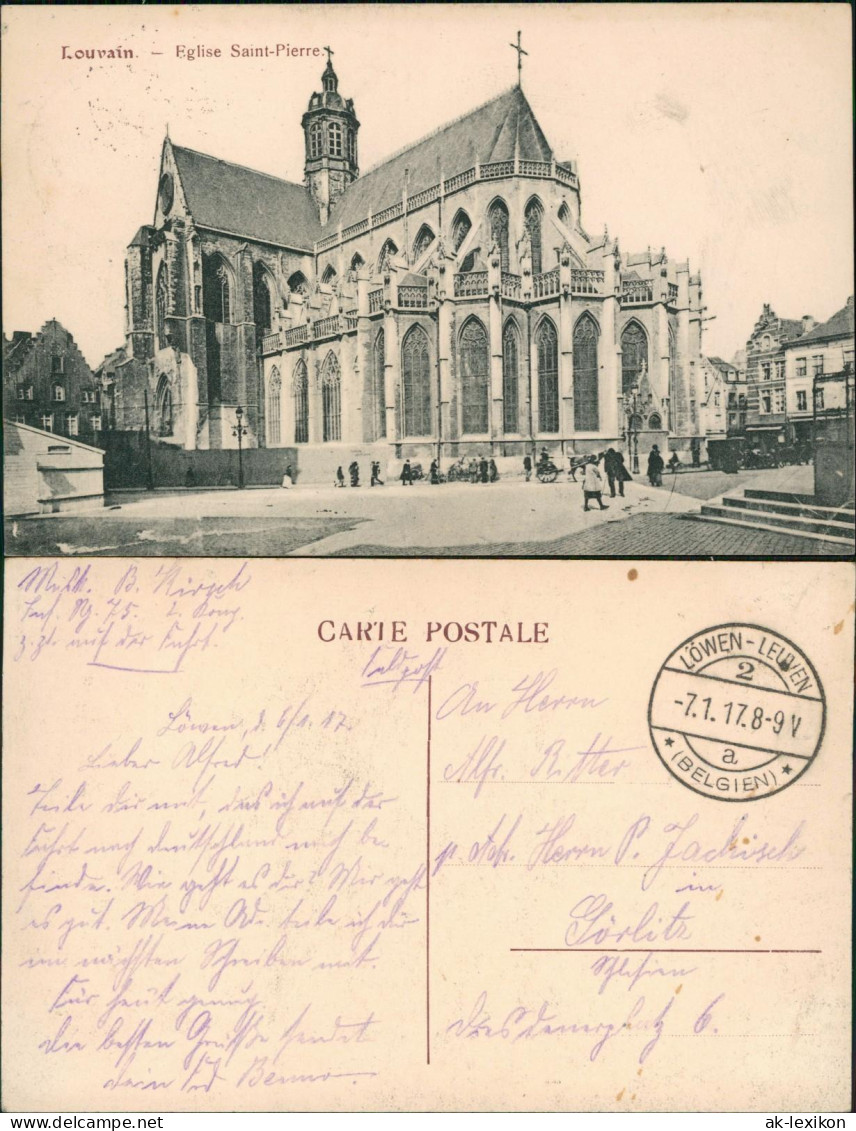 Louvain. – Eglise Saint-Pierre.
B. Kirsch
Inf. Rg. 75. 2. Komp.
z. Zt. auf der Fahrt.
CARTE POSTALE
Feldpost
LÖWEN-LEUVEN
2
-7.1.17.8-9V
a
★ (BELGIEN) ★
Löwen, d. 6/1. 17.
Lieber Alfred!
Teile dir mit, das ich auf der
Fahrt nach Deutschland mich be-
finde. Wie geht es dir? Mir geht
es gut. Meine Adr. teile ich dir
im nächsten Schreiben mit.
Für heut genug
Die besten Grüsse sendet
dein Benno
An Herrn
Alfr. Ritter
Herrn P. Jackisch
in
Görlitz
Schlesien
Dresdenerplatz 6.
ak-lexikon